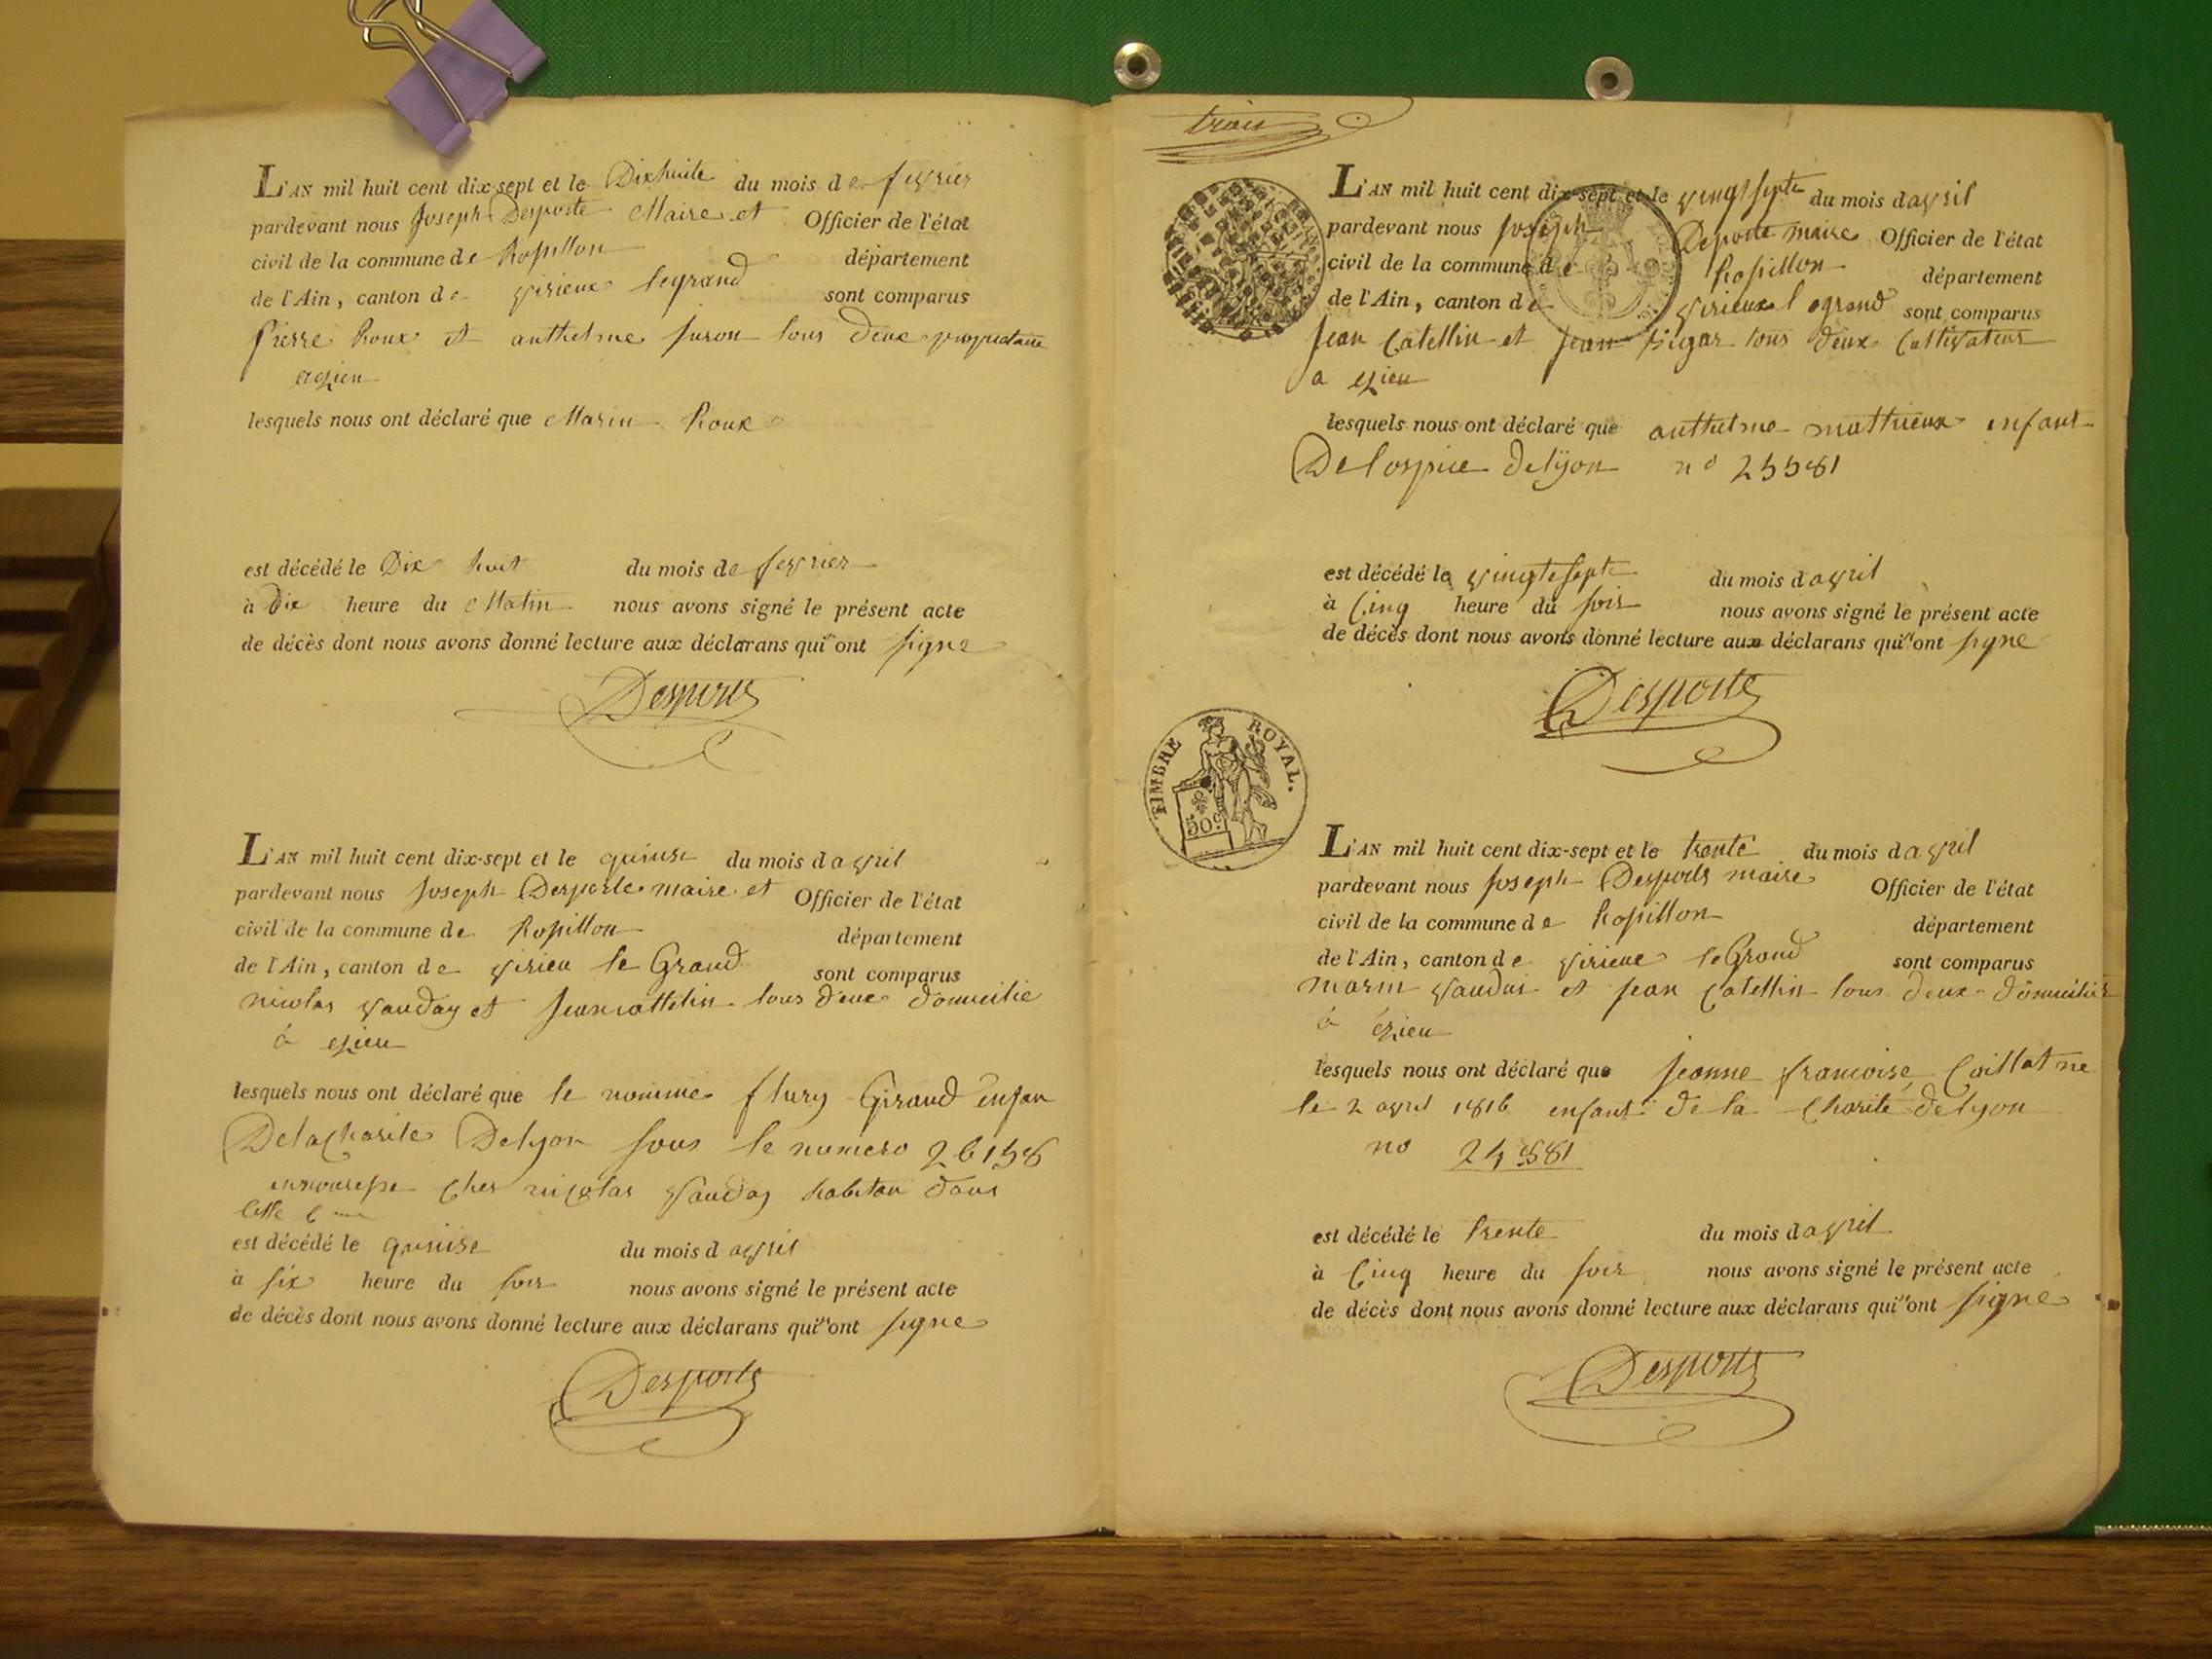 L'AN mil huit cent dix-sept et le Dixhuite du mois de fevrier
pardevant nous Joseph Desporte Maire et Officier de l'état
civil de la commune de Rossillon département
de l'Ain, canton de virieux legrand sont comparus
pierre Roux et anthelme juron tous deux proprietaire
aezieu
lesquels nous ont déclaré que Marin Roux
est décédé le Dix huit du mois de fevrier
à Dix heure du Matin nous avons signé le présent acte
de décès dont nous avons donné lecture aux déclarans qui ont signe
Desporte
L'AN mil huit cent dix-sept et le quinse du mois d avril
pardevant nous Joseph Desporte maire et Officier de l'état
civil de la commune de Rossillon département
de l'Ain, canton de virieu le Grand sont comparus
nicolas vauday et Jean cattelin tous deux domicilie
à ezieu
lesquels nous ont déclaré que le nomme flury Giraud enfan
Delacharite Delyon sous le numero 26158
en nourisse ches nicolas vauday habitan dans
cette c
est décédé le quinise du mois d avril
à six heure du soir nous avons signé le présent acte
de décès dont nous avons donné lecture aux déclarans qui ont signe
Desporte
trois
L'AN mil huit cent dix-sept et le vingtsepte du mois d avril
pardevant nous joseph Deporte maire Officier de l'état
civil de la commune de Rossillon département
de l'Ain, canton de virieux legrand sont comparus
jean Catellin et jean tous deux Cultivateur
a ezieu
lesquels nous ont déclaré que anthelme matthieux enfant
De lospice delyon no 25581
est décédé le vingtesepte du mois d avril
à Cinq heure du soir nous avons signé le présent acte
de décès dont nous avons donné lecture aux déclarans qui ont signe
Desporte
TIMBRE ROYAL.
50 c
L'AN mil huit cent dix-sept et le trente du mois d avril
pardevant nous joseph Desporte maire Officier de l'état
civil de la commune de Rossillon département
de l'Ain, canton de virieux leGrand sont comparus
marin vaudai et jean Catellin tous deux domicilies
à ézieu
lesquels nous ont déclaré que jeanne francoise Caillat ne
le 2 avril 1816 enfant de la Charité delyon
no 24881
est décédé le trente du mois d avril
à Cinq heure du soir nous avons signé le présent acte
de décès dont nous avons donné lecture aux déclarans qui ont signe
Desporte